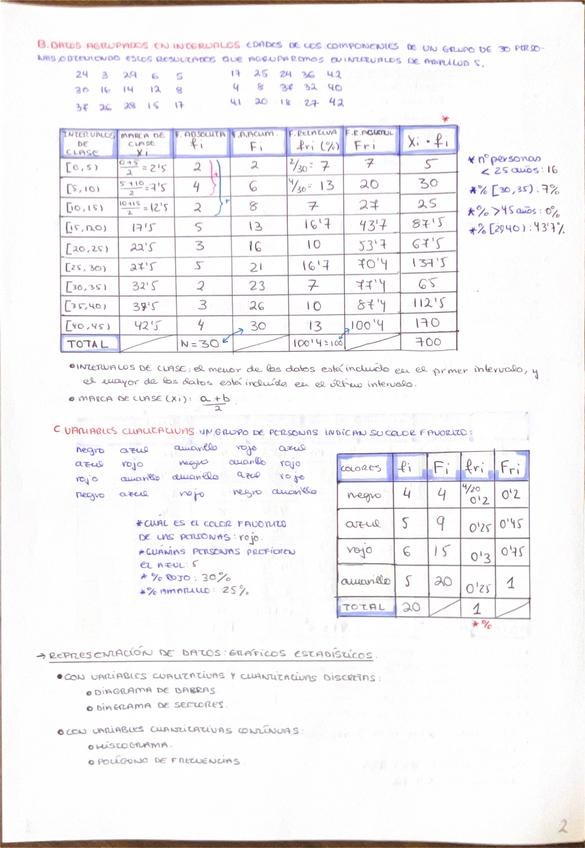 B. DATOS AGRUPADOS EN INTERVALOS EDADES DE LOS COMPONENTES DE UN GRUPO DE 30 PERSO-
NAS, OBTENIENDO ESTOS RESULTADOS QUE AGRUPAREMOS EN INTERVALOS DE AMPLITUD 5.
24 3 29 6 5 17 25 24 36 42
30 16 14 12 8 4 8 38 32 40
38 26 28 15 17 41 20 18 27 42
*
INTERVALOS DE CLASE MARCA DE CLASE Xi F. ABSOLUTA fi F. ACUM. Fi F. RELATIVA fri (%) F.R. ACUMUL Fri Xi · fi
[0,5) 0+5/2 = 2'5 2 2 2/30 = 7 7 5
[5,10) 5+10/2 = 7'5 4 6 4/30 = 13 20 30
[10,15) 10+15/2 = 12'5 2 8 7 27 25
[15,20) 17'5 5 13 16'7 43'7 87'5
[20,25) 22'5 3 16 10 53'7 67'5
[25,30) 27'5 5 21 16'7 70'4 137'5
[30,35) 32'5 2 23 7 77'4 65
[35,40) 38'5 3 26 10 87'4 112'5
[40,45) 42'5 4 30 13 100'4 170
TOTAL N=30 100'4=100 700
* nº personas
< 25 años: 16
* % [30,35): 7%
* % >45 años: 0%
* % [2540): 43'7%
• INTERVALOS DE CLASE: el menor de los datos está incluido en el primer intervalo, y
el mayor de los datos está incluido en el último intervalo.
• MARCA DE CLASE (Xi): a+b/2
C VARIABLES CUALITATIVAS UN GRUPO DE PERSONAS INDICAN SU COLOR FAVORITO:
negro azul amarillo rojo azul
azul rojo negro amarillo rojo
rojo amarillo amarillo azul rojo
negro azul rojo negro amarillo
COLORES fi Fi fri Fri
negro 4 4 4/20 0'2 0'2
azul 5 9 0'25 0'45
rojo 6 15 0'3 0'75
amarillo 5 20 0'25 1
TOTAL 20 1
* %
* CUAL ES EL COLOR FAVORITO
DE LAS PERSONAS: rojo.
* CUANTAS PERSONAS PREFIEREN
EL AZUL: 5
* % ROJO: 30%
* % AMARILLO: 25%
→ REPRESENTACIÓN DE DATOS: GRÁFICOS ESTADÍSTICOS.
• CON VARIABLES CUALITATIVAS Y CUANTITATIVAS DISCRETAS:
• DIAGRAMA DE BARRAS
• DIAGRAMA DE SECTORES.
• CON VARIABLES CUANTITATIVAS CONTINUAS:
• HISTOGRAMA.
• POLÍGONO DE FRECUENCIAS.
2